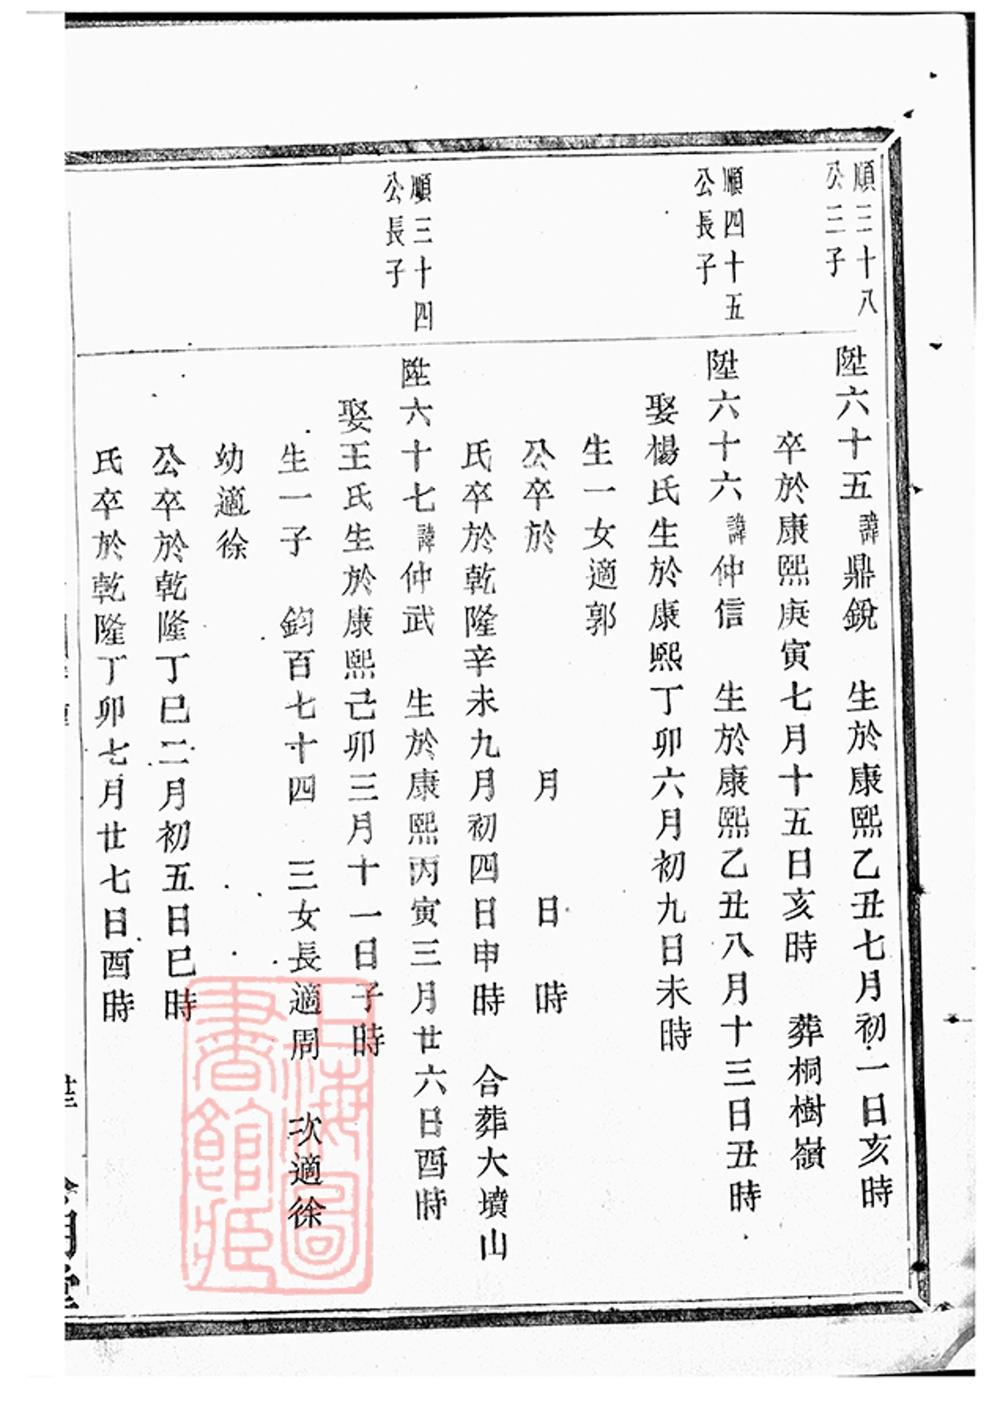 順三十八
公三子
陞六十五諱鼎銳 生於康熙乙丑七月初一日亥時
卒於康熙庚寅七月十五日亥時 葬桐樹嶺
順四十五
公長子
陞六十六諱仲信 生於康熙乙丑八月十三日丑時
娶楊氏生於康熙丁卯六月初九日未時
生一女適郭
公卒於 月 日 時
氏卒於乾隆辛未九月初四日申時 合葬大墳山
順三十四
公長子
陞六十七諱仲武 生於康熙丙寅三月廿六日酉時
娶王氏生於康熙己卯三月十一日子時
生一子 鈞百七十四 三女長適周 次適徐
幼適徐
公卒於乾隆丁巳二月初五日巳時
氏卒於乾隆丁卯七月廿七日酉時
上海圖
書館藏